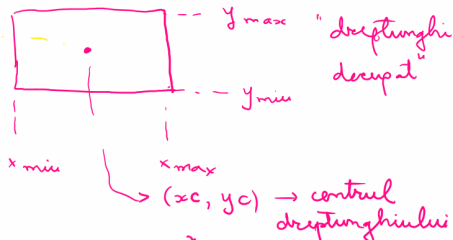 y max "dreptunghi
decupat"
y min
x min x max
(xc, yc) → centrul
dreptunghiului